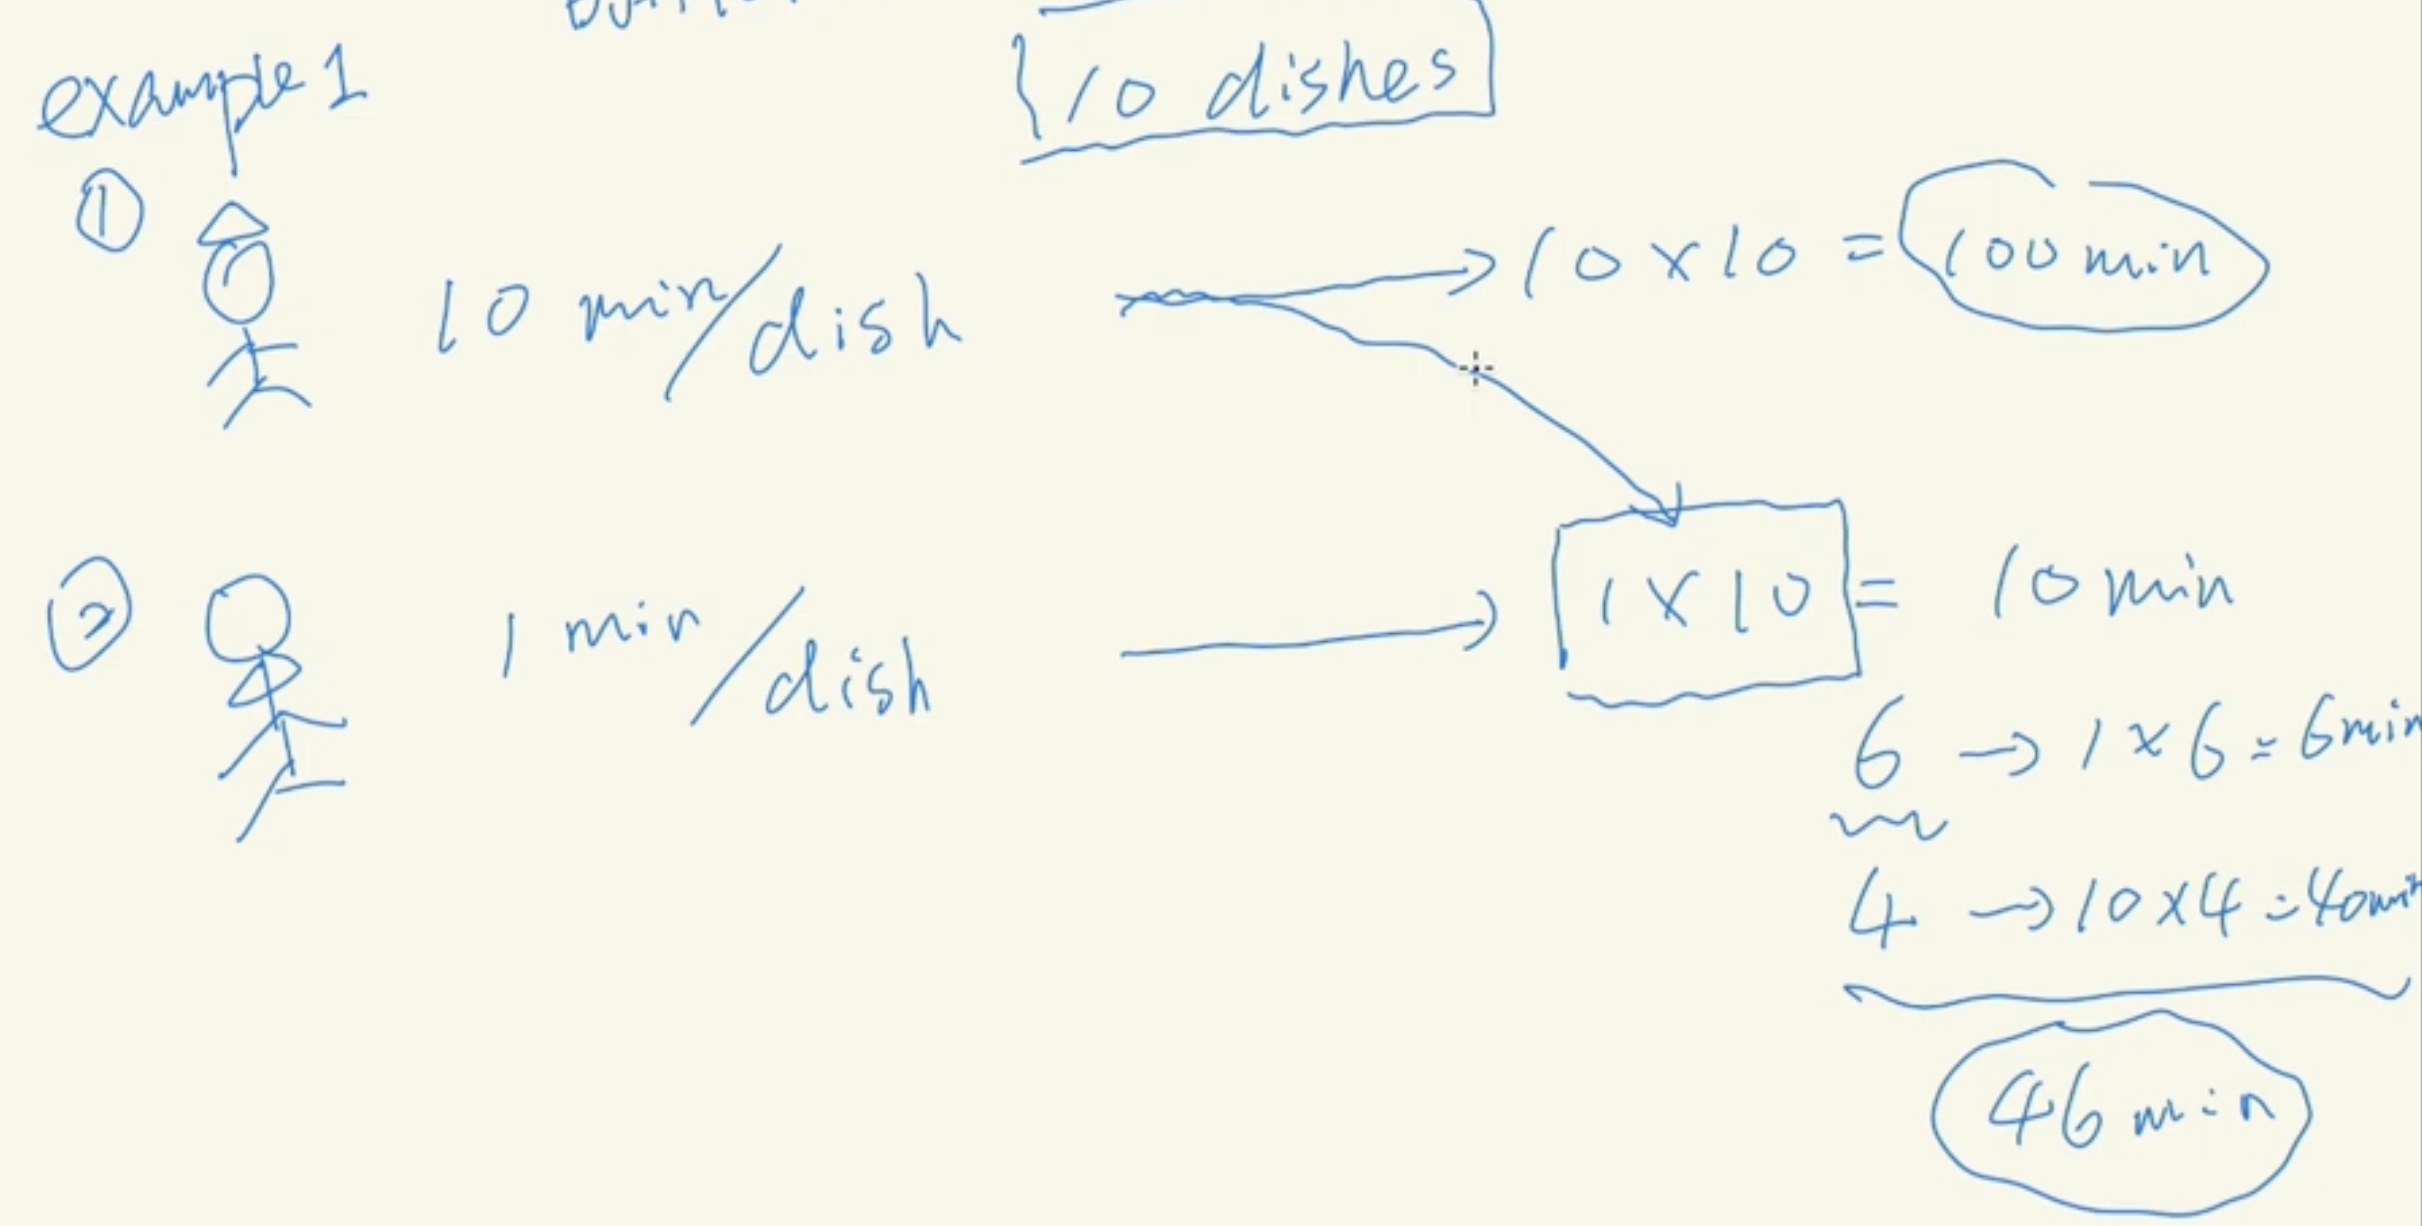 10 dishes
example 1
①
10 min/dish
10 x 10 = 100 min
②
1 min/dish
1 x 10 = 10 min
6 → 1 x 6 = 6 min
4 → 10 x 4 = 40min
46 min